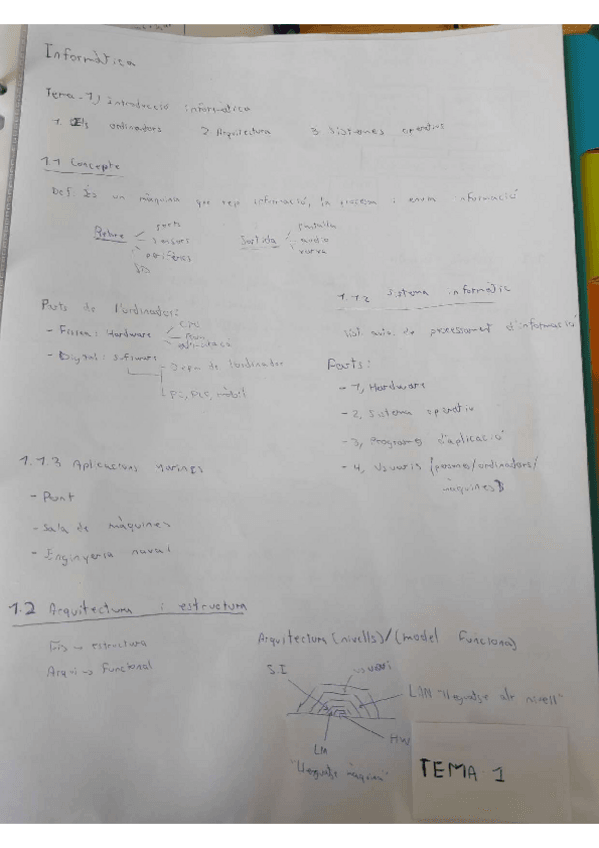 Informàtica
Tema -1) introducció informàtica
1. Els ordinadors 2 Arquitectura 3. Sistemes operatius
1.1 Concepte
Def: És un màquina que rep informació, la processa i envia informació
Rebre ports
sensors
perifèrics
SD
Sortida pantalla
audio
xarxa
Parts de l'ordinador:
- Física: Hardware CPU
- Digital: software
PC, PLC, mòbil
1.1.2 Sistema informàtic
de processament d'informació
Parts:
- 1, Hardware
- 2, Sistema operatiu
- 3, Programes d'aplicació
- 4, Usuaris (persones/ordinadors/
màquines)
1.1.3 Aplicacions marines
- Pont
- Sala de màquines
- Enginyeria naval
1.2 Arquitectura i estructura
Fís → estructura
Arqui → Funcional
Arquitectura (nivells)/(model funcional)
S.I usuari
LAN "llenguatge alt nivell"
HW
LM
"Llenguatge màquina"
TEMA 1